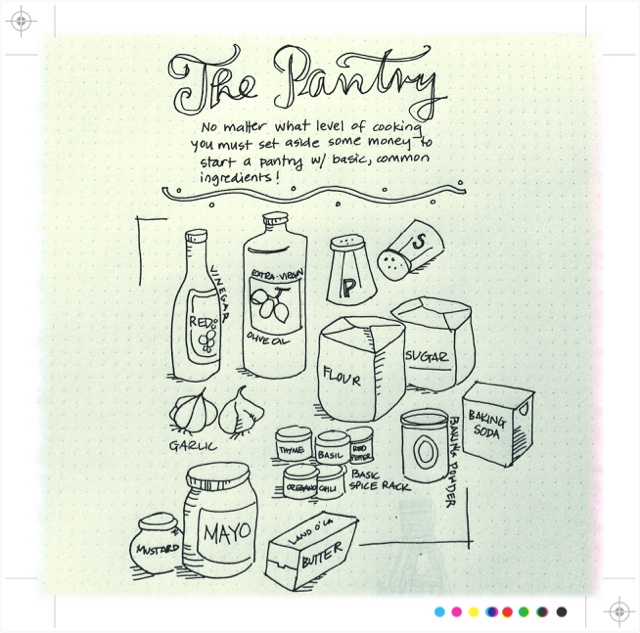 The Pantry
No matter what level of cooking
you must set aside some money to
start a pantry w/ basic, common
ingredients!
S
P
EXTRA-VIRGIN
OLIVE OIL
VINEGAR
RED
FLOUR
SUGAR
BAKING
SODA
GARLIC
THYME
BASIL
RED
PEPPER
OREGANO
CHILI
BASIC
SPICE RACK
BAKING POWDER
MUSTARD
MAYO
LAND O' LA
BUTTER